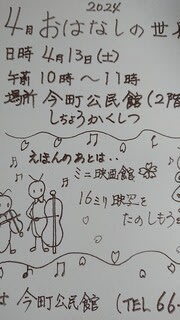 2024
4月おはなしの世
日時 4月13日(土)
午前10時〜11時
場所 今町公民館(2階
しちょうかくしつ
えほんのあとは・・
ミニ映画館
16ミリ映画を
たのしもう
今町公民館 (TEL 66-